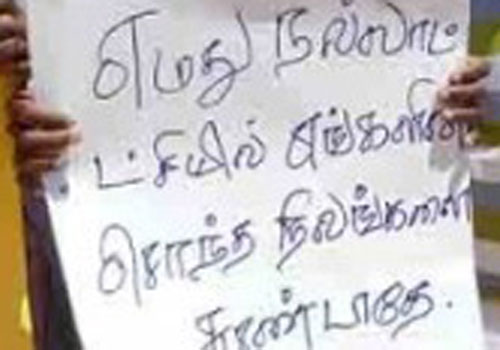 எமது நல்லாட்
ட்சியில் எங்களின்
சொந்த நிலங்களை
சுரண்டாதே.